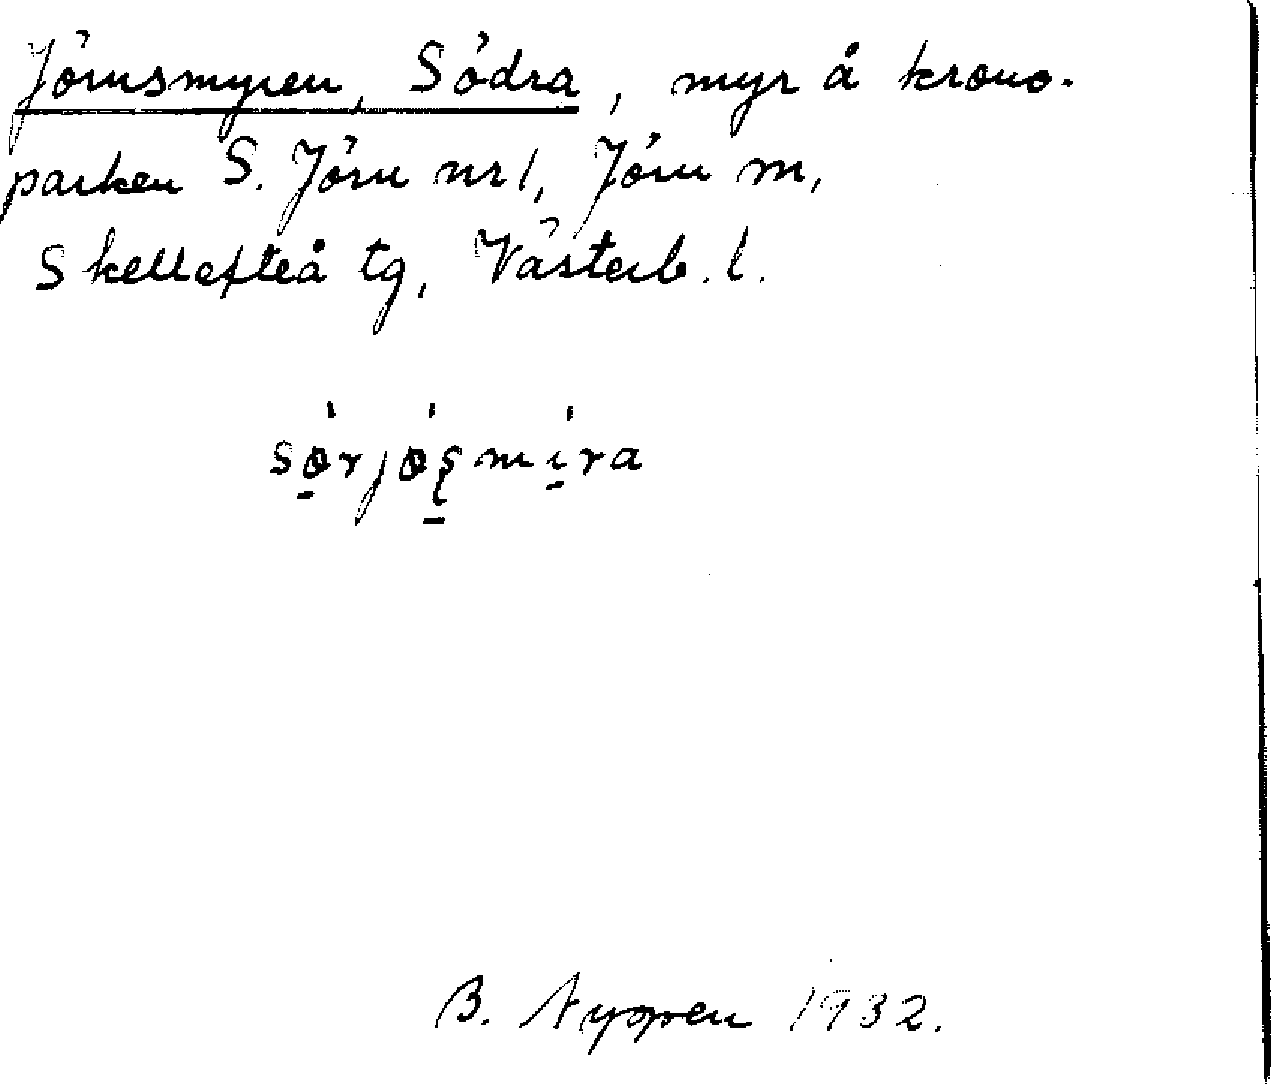 Jörnsmyren, Södra, myr å krono-
parken S. Jörn nr 1, Jörn sn,
Skellefteå tg, Västerb. l.
B. Nygren 1932.